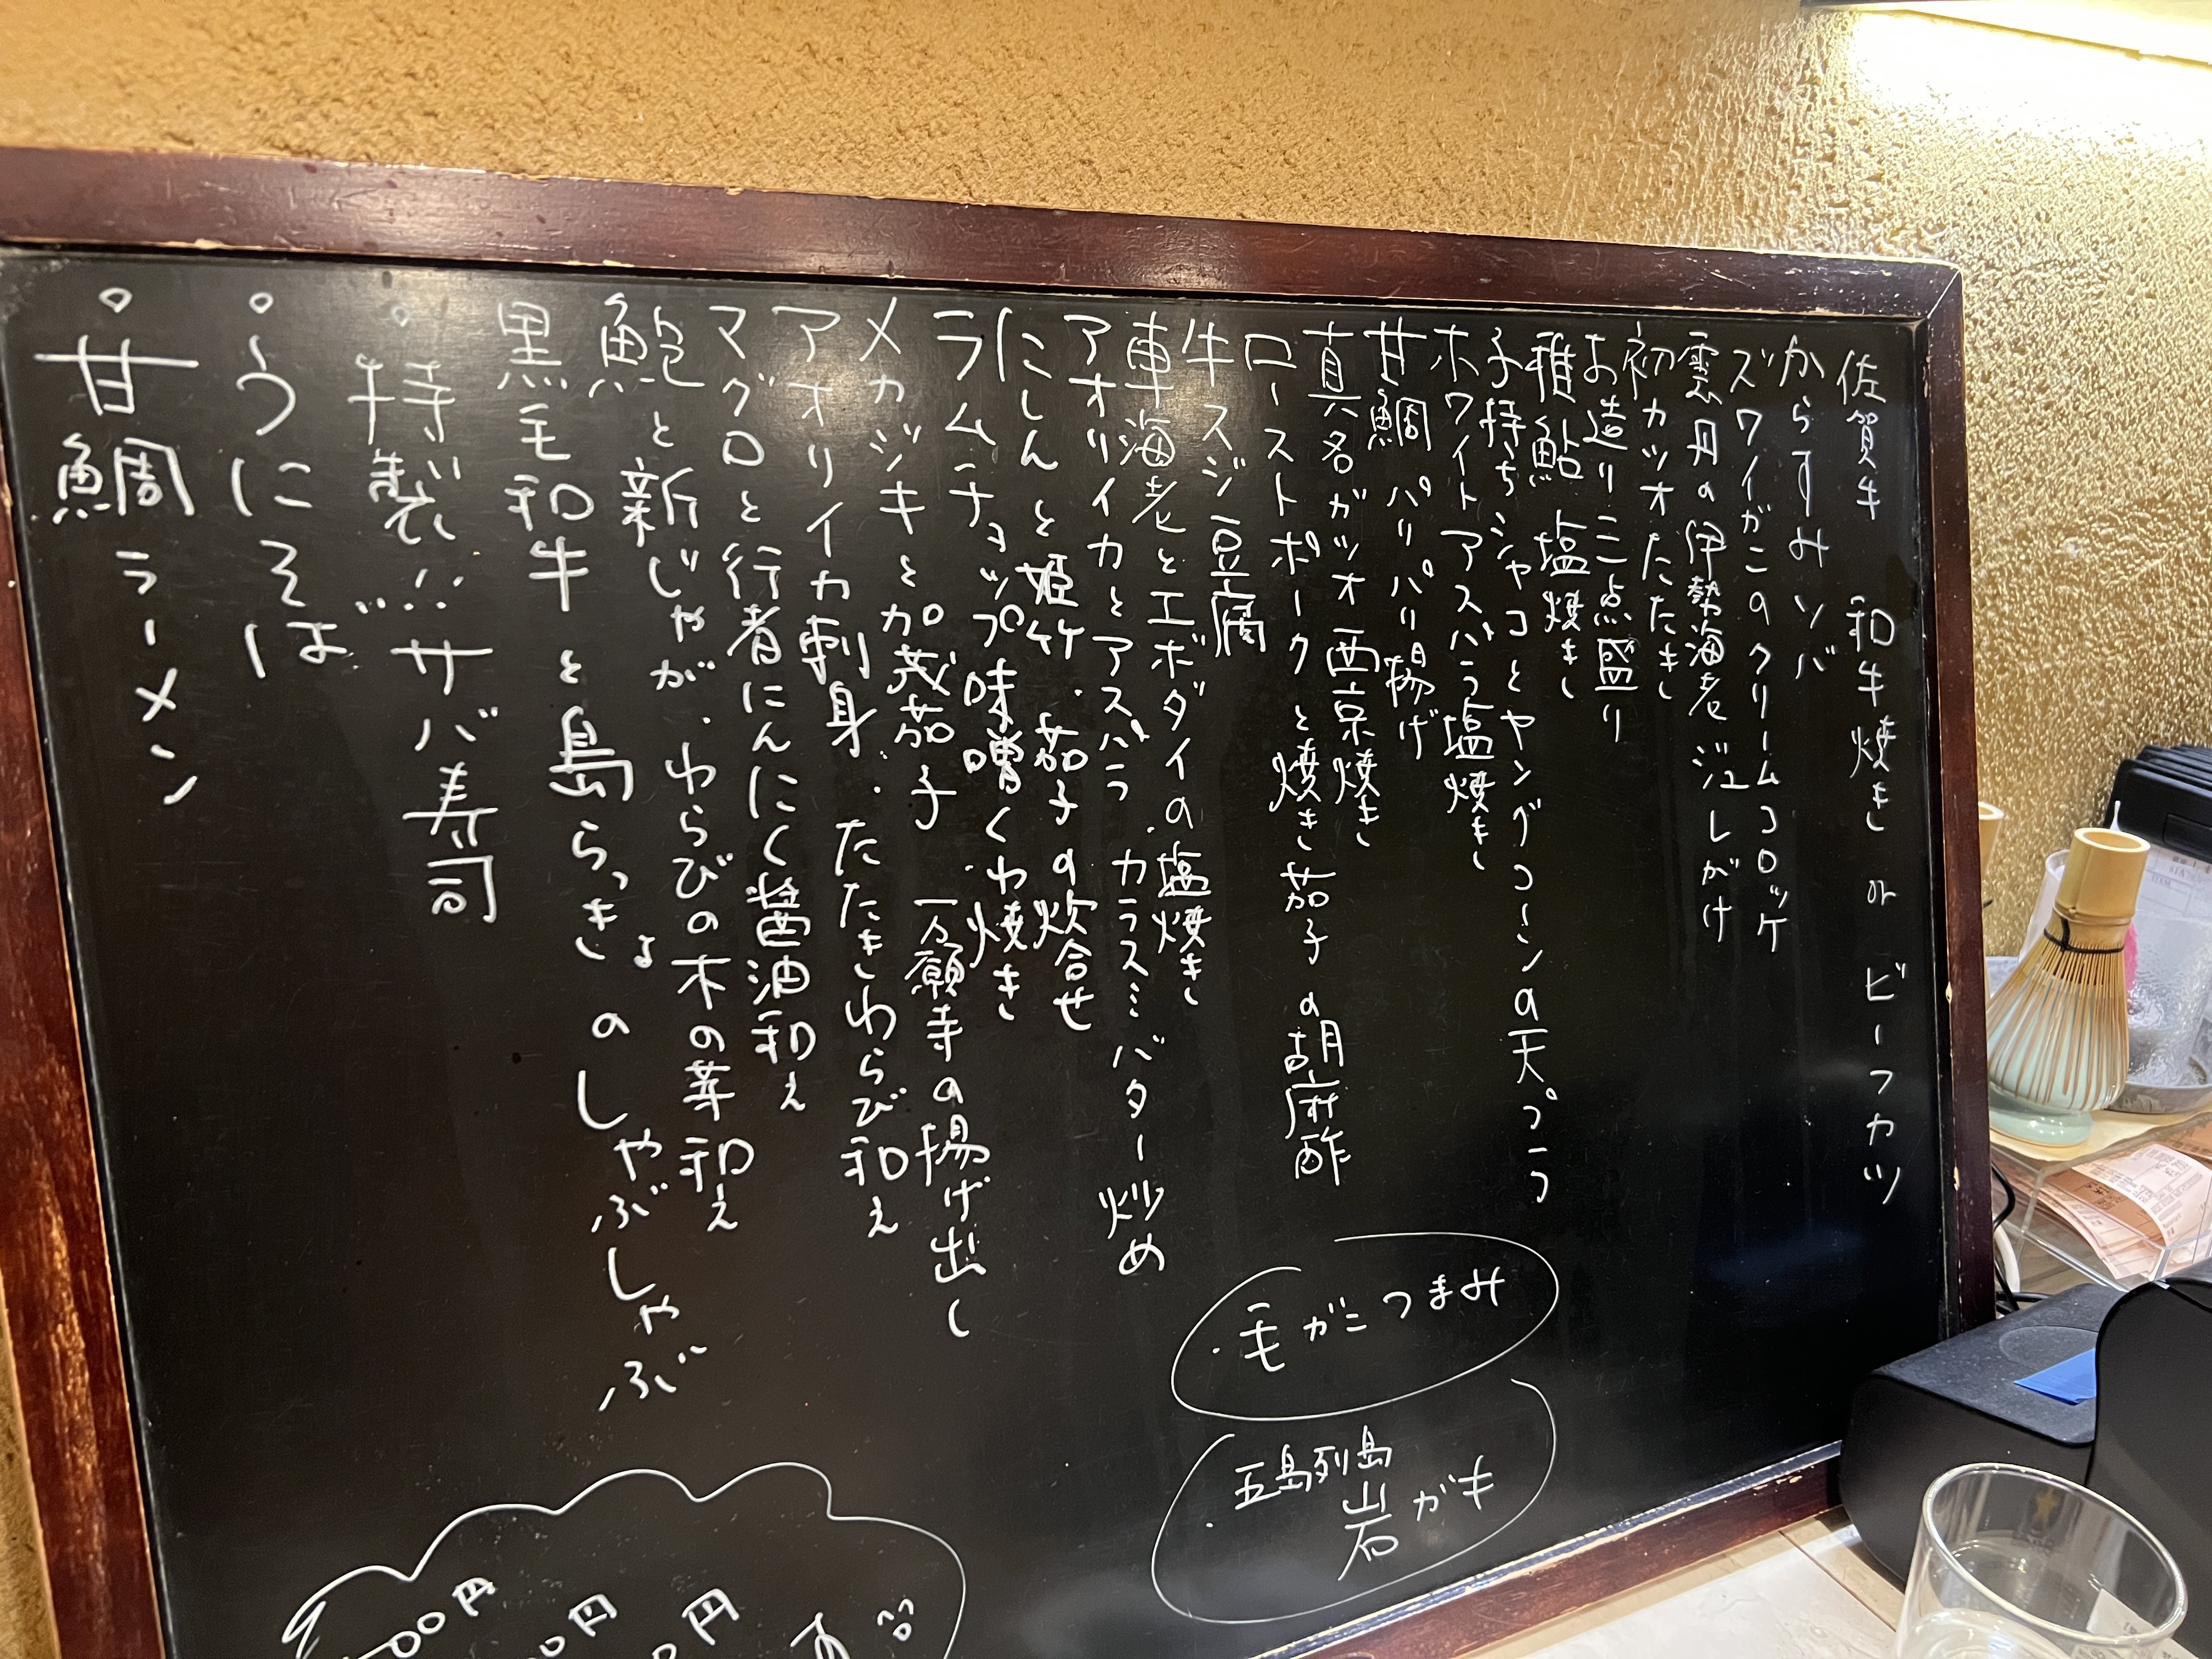 佐賀牛 和牛焼き or ビーフカツ
からすみソバ
ズワイガニのクリームコロッケ
雲丹の伊勢海老ジュレがけ
初カツオたたき
お造り三点盛り
稚鮎 塩焼き
子持ちシャコとヤングコーンの天プラ
ホワイトアスパラ塩焼き
甘鯛 パリパリ揚げ
真名ガツオ 西京焼き
ローストポークと焼き茄子の胡麻酢
牛スジ豆腐
車海老とエボダイの塩焼き
アオリイカとアスパラ・カラスミバター炒め
にしんと姫竹・茄子の炊合せ
ラムチョップ味噌くわ焼き
メカジキと加茂茄子・万願寺の揚げ出し
アオリイカ刺身・たたきわらび和え
マグロと行者にんにく醤油和え
鮑と新じゃが・わらびの木の芽和え
黒毛和牛と島らっきょのしゃぶしゃぶ
・特製!!サバ寿司
・うにそば
・甘鯛ラーメン
・毛ガニつまみ
・五島列島
岩ガキ
00円
0円
0円